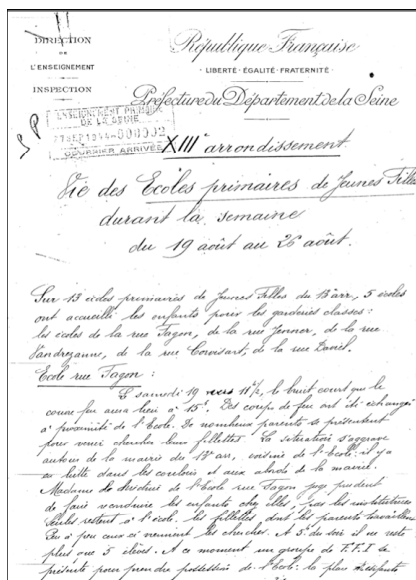 DIRECTION
DE
L'ENSEIGNEMENT
INSPECTION
République Française
LIBERTÉ - ÉGALITÉ - FRATERNITÉ
Préfecture du Département de la Seine
ENSEIGNEMENT PRIMAIRE
DE LA SEINE
SEP 1944
COURRIER ARRIVÉE
XIIIe arrondissement
Vie des Ecoles primaires de Jeunes Filles
durant la semaine
du 19 août au 26 août.
Sur 13 écoles primaires de Jeunes Filles du 13e arr, 5 écoles
ont accueilli les enfants pour les garderies classes :
les écoles de la rue Fagon, de la rue Jenner, de la rue
Vandrezanne, de la rue Corvisart, de la rue Daniel.
Ecole rue Fagon :
Le samedi 19 vers 11h1/2, le bruit court que le
couvre feu aura lieu à 15h. Des coups de feu ont été échangés
à proximité de l'Ecole. De nombreux parents se présentent
pour venir chercher leurs fillettes. La situation s'aggrave
autour de la mairie du 13e arr, voisine de l'Ecole : il y a
en lutte dans les et aux abords de la mairie.
Madame la directrice de l'Ecole rue Fagon juge prudent
de faire reconduire les enfants chez elles, par les institutrices
seules restent à l'école, les fillettes dont les parents travaillent.
Peu à peu ceux ci viennent les chercher. A 5h du soir il ne reste
plus que 5 élèves. A ce moment un groupe de F.F.I se
présente pour prendre possession de l'Ecole : la place